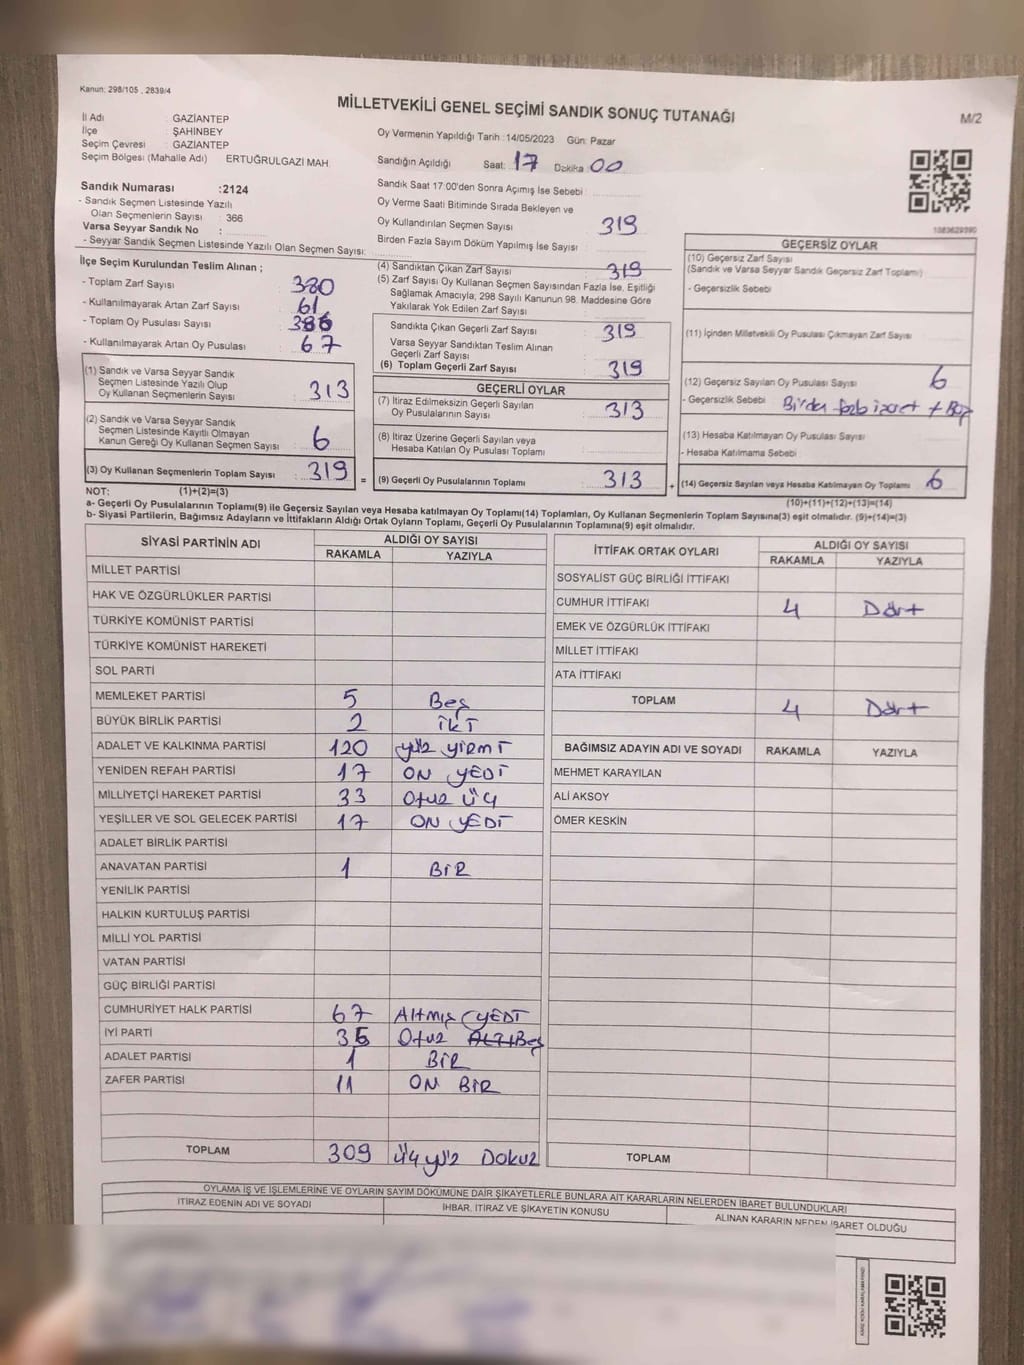 Kanun: 298/105 , 2839/4
MİLLETVEKİLİ GENEL SEÇİMİ SANDIK SONUÇ TUTANAĞI
M/2
İl Adı : GAZİANTEP
İlçe : ŞAHİNBEY
Seçim Çevresi : GAZİANTEP
Seçim Bölgesi (Mahalle Adı) ERTUĞRULGAZİ MAH.
Sandık Numarası :2124
- Sandık Seçmen Listesinde Yazılı
Olan Seçmenlerin Sayısı : 366
Varsa Seyyar Sandık No :
- Seyyar Sandık Seçmen Listesinde Yazılı Olan Seçmen Sayısı:
Oy Vermenin Yapıldığı Tarih :14/05/2023 Gün: Pazar
Sandığın Açıldığı Saat: 17 Dakika 00
Sandık Saat 17:00'den Sonra Açımış İse Sebebi
Oy Verme Saati Bitiminde Sırada Bekleyen ve
Oy Kullandırılan Seçmen Sayısı 319
Birden Fazla Sayım Döküm Yapılmış İse Sayısı
1083629390
İlçe Seçim Kurulundan Teslim Alınan ;
- Toplam Zarf Sayısı : 380
- Kullanılmayarak Artan Zarf Sayısı : 61
- Toplam Oy Pusulası Sayısı : 386
- Kullanılmayarak Artan Oy Pusulası : 67
(1) Sandık ve Varsa Seyyar Sandık
Seçmen Listesinde Yazılı Olup
Oy Kullanan Seçmenlerin Sayısı : 313
(2) Sandık ve Varsa Seyyar Sandık
Seçmen Listesinde Kayıtlı Olmayan
Kanun Gereği Oy Kullanan Seçmen Sayısı : 6
(3) Oy Kullanan Seçmenlerin Toplam Sayısı : 319 =
(4) Sandıktan Çıkan Zarf Sayısı 319
(5) Zarf Sayısı Oy Kullanan Seçmen Sayısından Fazla İse, Eşitliği
Sağlamak Amacıyla, 298 Sayılı Kanunun 98. Maddesine Göre
Yakılarak Yok Edilen Zarf Sayısı
Sandıkta Çıkan Geçerli Zarf Sayısı 319
Varsa Seyyar Sandıktan Teslim Alınan
Geçerli Zarf Sayısı
(6) Toplam Geçerli Zarf Sayısı 319
GEÇERLİ OYLAR
(7) İtiraz Edilmeksizin Geçerli Sayılan
Oy Pusulalarının Sayısı : 313
(8) İtiraz Üzerine Geçerli Sayılan veya
Hesaba Katılan Oy Pusulası Toplamı
(9) Geçerli Oy Pusulalarının Toplamı 313 +
GEÇERSİZ OYLAR
(10) Geçersiz Zarf Sayısı
(Sandık ve Varsa Seyyar Sandık Geçersiz Zarf Toplamı)
- Geçersizlik Sebebi
(11) İçinden Milletvekili Oy Pusulası Çıkmayan Zarf Sayısı
(12) Geçersiz Sayılan Oy Pusulası Sayısı 6
- Geçersizlik Sebebi Birden fazla işaret + Boş
(13) Hesaba Katılmayan Oy Pusulası Sayısı
- Hesaba Katılmama Sebebi
(14) Geçersiz Sayılan veya Hesaba Katılmayan Oy Toplamı 6
NOT: (1)+(2)=(3)
(10)+(11)+(12)+(13)=(14)
a- Geçerli Oy Pusulalarının Toplamı(9) ile Geçersiz Sayılan veya Hesaba katılmayan Oy Toplamı(14) Toplamları, Oy Kullanan Seçmenlerin Toplam Sayısına(3) eşit olmalıdır. (9)+(14)=(3)
b- Siyasi Partilerin, Bağımsız Adayların ve İttifakların Aldığı Ortak Oyların Toplamı, Geçerli Oy Pusulalarının Toplamına(9) eşit olmalıdır.
SİYASİ PARTİNİN ADI ALDIĞI OY SAYISI
RAKAMLA YAZIYLA
MİLLET PARTİSİ
HAK VE ÖZGÜRLÜKLER PARTİSİ
TÜRKİYE KOMÜNİST PARTİSİ
TÜRKİYE KOMÜNİST HAREKETİ
SOL PARTİ
MEMLEKET PARTİSİ 5 Beş
BÜYÜK BİRLİK PARTİSİ 2 İKİ
ADALET VE KALKINMA PARTİSİ 120 yüz yirmi
YENİDEN REFAH PARTİSİ 17 ON YEDİ
MİLLİYETÇİ HAREKET PARTİSİ 33 Otuz üç
YEŞİLLER VE SOL GELECEK PARTİSİ 17 ON YEDİ
ADALET BİRLİK PARTİSİ
ANAVATAN PARTİSİ 1 BİR
YENİLİK PARTİSİ
HALKIN KURTULUŞ PARTİSİ
MİLLİ YOL PARTİSİ
VATAN PARTİSİ
GÜÇ BİRLİĞİ PARTİSİ
CUMHURİYET HALK PARTİSİ 67 Altmış YEDİ
İYİ PARTİ 35 Otuz Beş
ADALET PARTİSİ 1 BİR
ZAFER PARTİSİ 11 ON BİR
TOPLAM 309 üçyüz Dokuz
İTTİFAK ORTAK OYLARI ALDIĞI OY SAYISI
RAKAMLA YAZIYLA
SOSYALİST GÜÇ BİRLİĞİ İTTİFAKI
CUMHUR İTTİFAKI 4 Dört
EMEK VE ÖZGÜRLÜK İTTİFAKI
MİLLET İTTİFAKI
ATA İTTİFAKI
TOPLAM 4 Dört
BAĞIMSIZ ADAYIN ADI VE SOYADI RAKAMLA YAZIYLA
MEHMET KARAYILAN
ALİ AKSOY
ÖMER KESKİN
TOPLAM
OYLAMA İŞ VE İŞLEMLERİNE VE OYLARIN SAYIM DÖKÜMÜNE DAİR ŞİKAYETLERLE BUNLARA AİT KARARLARIN NELERDEN İBARET BULUNDUKLARI
İTİRAZ EDENİN ADI VE SOYADI İHBAR, İTİRAZ VE ŞİKAYETİN KONUSU ALINAN KARARIN NEDEN İBARET OLDUĞU